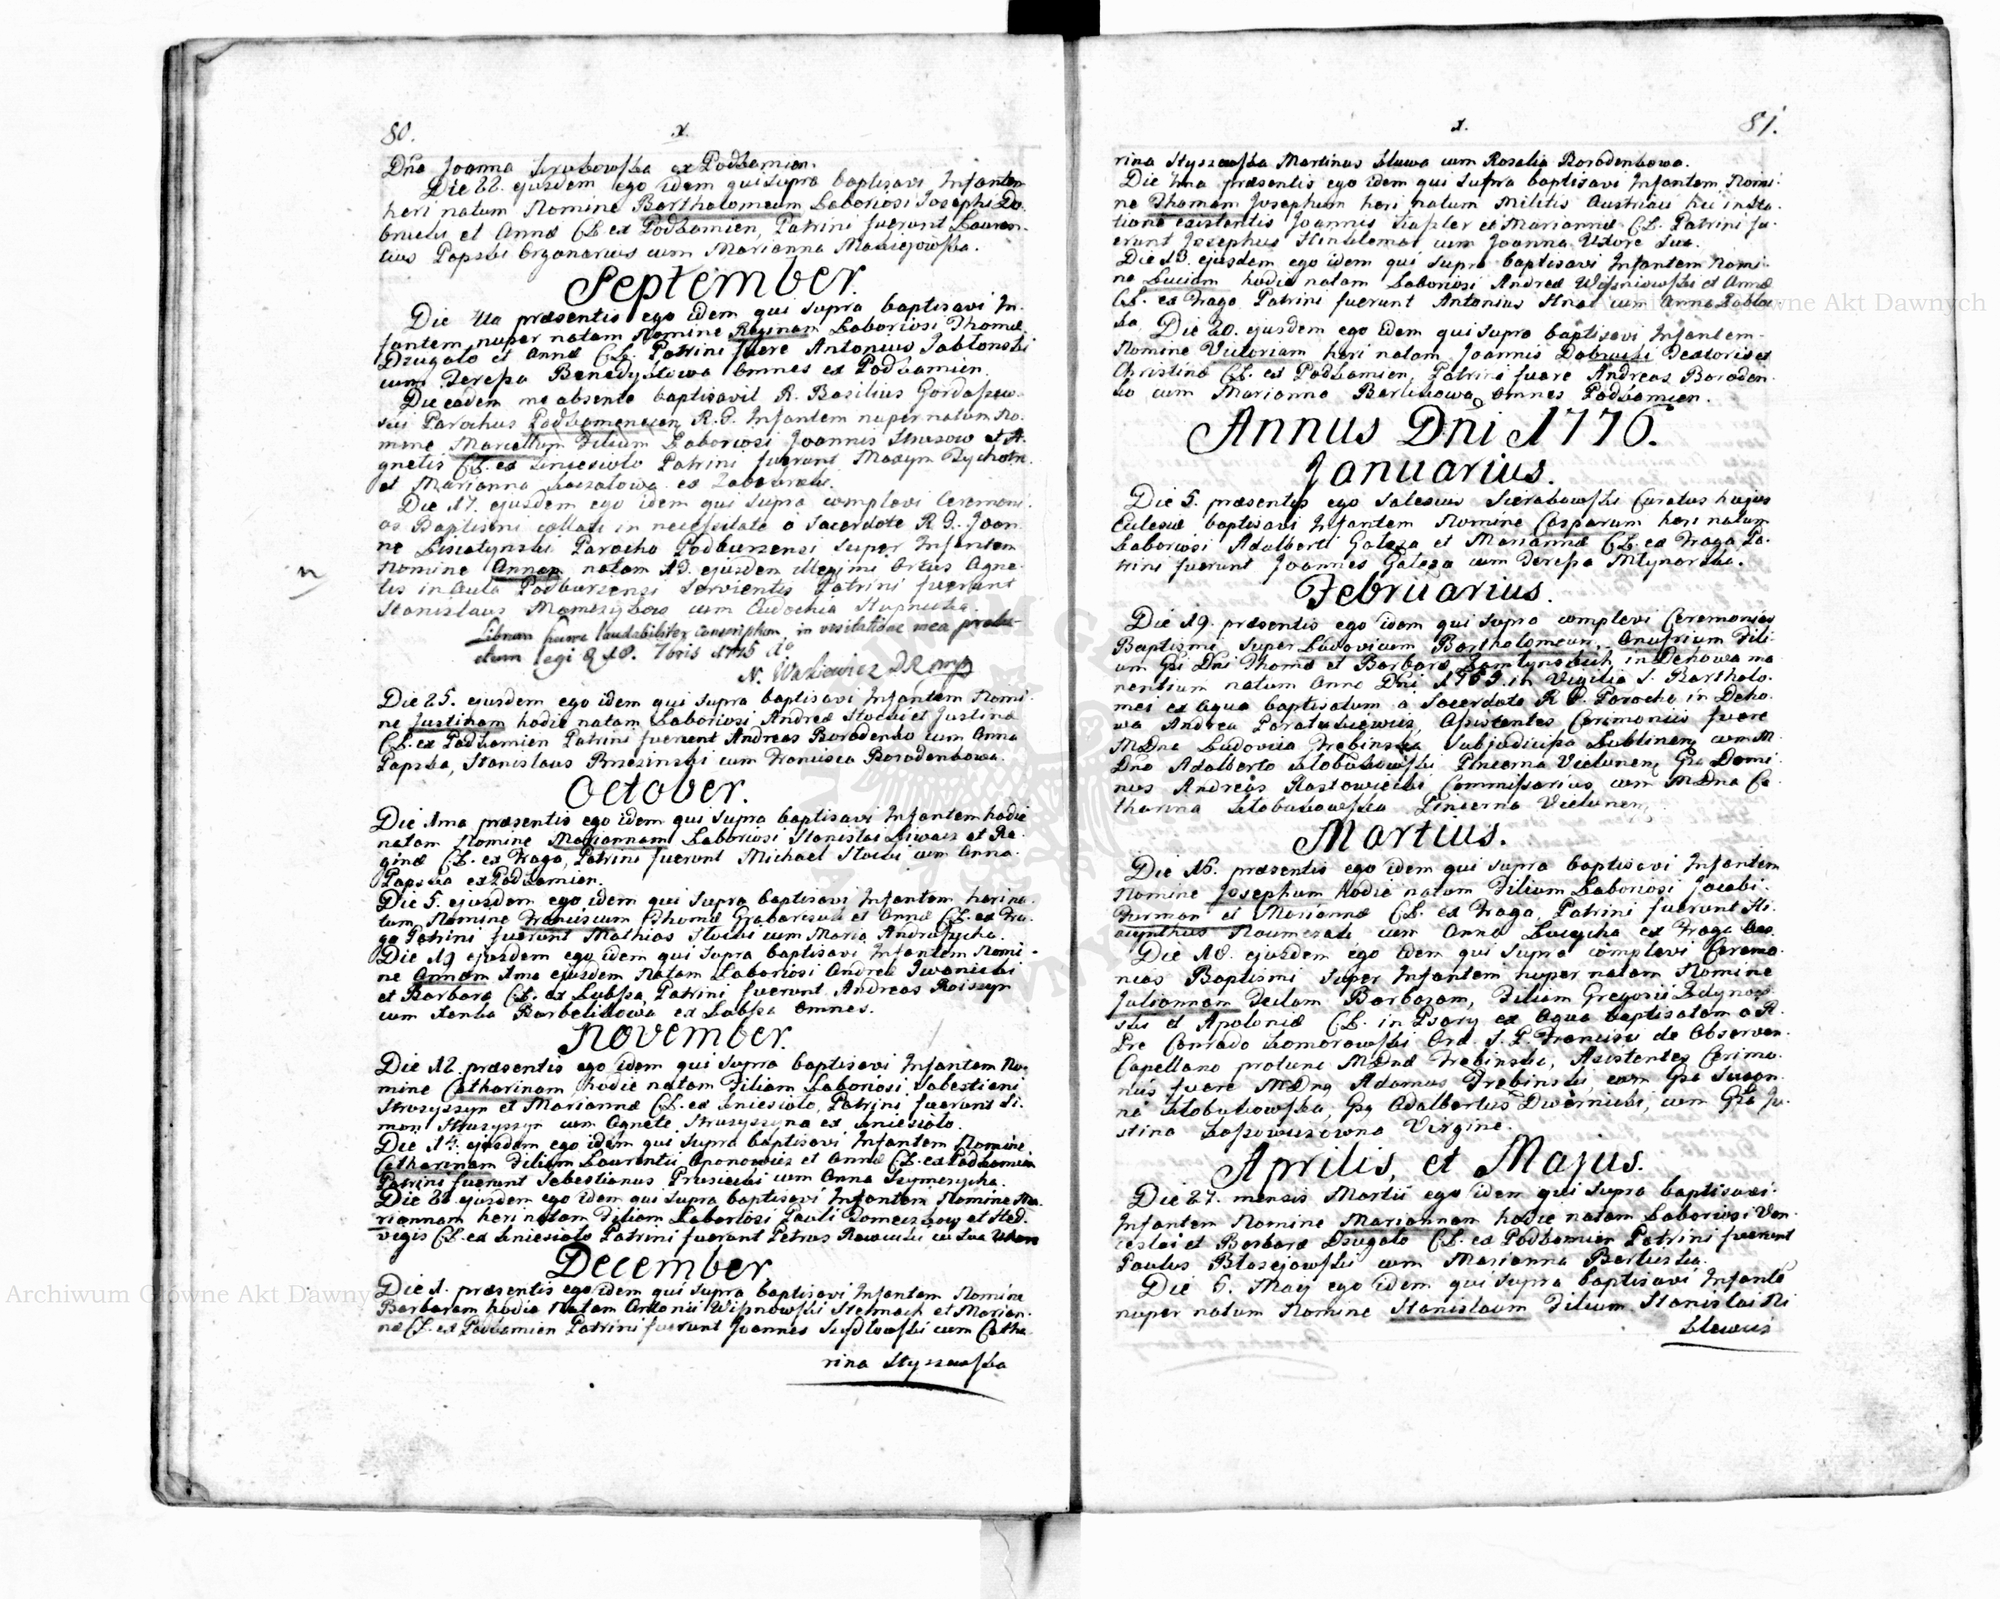 80.
x.
Dna Joanna Serabowska ex Podkamien.
Die 22. ejusdem ego idem qui supra baptisavi Infantem
heri natum Nomine Bartholomeum Laboriosi Josephi Do-
brucki et Annæ C.L. ex Podkamien, Patrini fuerunt Lauren-
tius Papski Organarius cum Marianna Maciejowska.
September.
Die 4ta præsentis ego idem qui supra baptisavi In-
fantem nuper natam Nomine Reginam Laboriosi Thomæ
Dzugało et Annæ C.L. Patrini fuere Antonius Jabłonski
cum Teressa Benedyktowa Omnes ex Podkamien.
Die eadem me absente baptisavit R. Basilius Gordaszew-
ski Parochus Podkamenecen R.G. Infantem nuper natum No-
mine Filium Laboriosi Joannis et A-
gnetis C.L. ex Kniesioło Patrini fuerunt Maxym
et Marianna ex
Die 17. ejusdem ego idem qui supra complevi Ceremoni-
as Baptismi collati in necessitate a Sacerdote R.G. Joan-
ne Parocho Podburzensi super Infantem
Nomine Annam natam 13. ejusdem illegimi Ortus Agne-
tis in Aula Podburzensi Servientis Patrini fuerunt
Stanislaus cum Eudochia
Librum hunc laudabiliter conscriptum, in visitatione mea prolec-
tum legi 8 18. 7bris 1775 Ao
N. Wasiewicz D.R. mp
Die 25. ejusdem ego idem qui supra baptisavi Infantem Nomi-
ne Justinam hodie natam Laboriosi Andreæ Stocki et Justinæ
C.L. ex Podkamien Patrini fuerunt Andreas Borodenko cum Anna
Papska, Stanislaus Brzezinski cum Francisca Borodenkowa.
October.
Die 1ma præsentis ego idem qui supra baptisavi Infantem hodie
natam Nomine Mariannam Laboriosi Stanislai Siwacz et Re-
ginæ C.L. ex Fraga, Patrini fuerunt Michael Stocki cum Anna
Papska ex Podkamien.
Die 5. ejusdem ego idem qui supra baptisavi Infantem heri na-
tum Nomine Franciscum Thomæ Grabarczuk et Annæ C.L. ex Fra-
ga Patrini fuerunt Mathias Stocki cum Maria Andruszycha.
Die 19 ejusdem ego idem qui supra baptisavi Infantem Nomi-
ne Annam 1ma ejusdem Natam Laboriosi Andreæ Iwanicki
et Barbaræ C.L. ex Łubsza, Patrini fuerunt Andreas
cum Xenka ex Łubsza Omnes.
November.
Die 12. præsentis ego idem qui supra baptisavi Infantem No-
mine Catharinam hodie natam Filiam Laboriosi Sabestiani
Struszyszyn et Mariannæ C.L. ex Kniesioło, Patrini fuerunt Si-
mon Struszyszyn cum Agnete Struszyszyna ex Kniesioło.
Die 14. ejusdem ego idem qui supra baptisavi Infantem Nomine
Catharinam Filiam Laurentii Aponowicz et Annæ C.L. ex Podkamien
Patrini fuerunt Sebestianus Prusiecki cum Anna Szymczycha.
Die 22 ejusdem ego idem qui supra baptisavi Infantem Nomine Ma-
riannam heri natam Filiam Laboriosi Pauli et Hed-
vigis C.L. ex Kniesioło Patrini fuerunt Petrus Rawicki cu sua Uxore
December
Die 1. præsentis ego idem qui supra baptisavi Infantem Nomine
Barbaram hodie Natam Antonii Wisznowski Stelmach et Marian-
næ C.L. ex Podkamien Patrini fuerunt Joannes Szydłowski cum Catha-
rina Styszewska
x.
81.
rina Styszewska Martinus Słuwa cum Rosalia Borodenkowa.
Die 7ma præsentis ego idem qui supra baptisavi Infantem Nomi-
ne Thomam Josephum heri natum Militis Austriaci hic in Sta-
tione existentis Joannis et Mariannæ C.L. Patrini fu-
erunt Josephus cum Joanna Uxore Sua.
Die 13. ejusdem ego idem qui supra baptisavi Infantem Nomi-
ne Luciam hodie natam Laboriosi Andreæ Wiszniowski et Annæ
C.L. ex Fraga Patrini fuerunt Antonius Hnat cum Anna
ka. Die 20. ejusdem ego idem qui supra baptisavi Infantem
Nomine Victoriam heri natam Joannis Dobrucki Textoris et
Christinæ C.L. ex Podkamien, Patrini fuere Andreas Boroden-
ko cum Marianna Bartkowa omnes Podkamien.
Annus Dni 1776.
Januarius.
Die 5. præsentis ego Salesius Sierabowski Curatus hujus
Eclesiæ baptisavi Infantem Nomine Casparum heri natum
Laboriosi Adalberti Gałeza et Mariannæ C.L. ex Fraga, Pa-
trini fuerunt Joannes Gałeza cum Teressa Młynarska.
Februarius.
Die 19. præsentis ego idem qui supra complevi Ceremonias
Baptismi super Ludovicum Bartholomeum, Onufrium Fili-
um Gsi Dni Thomæ et Barbaræ in Dehowa ma-
nentium natum Anno Dni 1769. in Vigilia S. Bartholo-
mei ex aqua baptisatum a Sacerdote R.G. Parocho in Deho-
wa Andrea Assistentes Ceremoniis fuere
MDna Ludovica Trebinska Subjudicissa Lublinen, cum M-
Dno Adalberto Kłobukowski Pincerna Vielunen, Gsi Domi-
nus Andreas Rostowiecki Commissarius cum MDna Ca-
tharina Kłobukowska Pincerna Vielunen,
Martius.
Die 16. præsentis ego idem qui supra baptisavi Infantem
Nomine Josephum hodie natum Filium Laboriosi Jacobi
Furman et Mariannæ C.L. ex Fraga, Patrini fuerunt Hi-
acynthus Naumczak cum Anna ex Fraga Oes
Die 18. ejusdem ego idem qui supra complevi Ceremo-
nias Baptismi super Infantem nuper natam Nomine
Juliannam Teclam Barbaram, Filiam Gregorii
ski et Apoloniæ C.L. in Psary ex Aqua baptisatam a R.
Pre Conrado Komorowski Ord. S.P. Francisci de Observan.
Capellano protunc MDnæ Trebinska, Asistentes Cerimo-
niis fuere MDnq Adamus Trebinski, cum Gsa Susan-
na Kłobukowska, Gsq Adalbertus Dwernicki, cum Gsa Ju-
stina Virgine.
Aprilis, et Majus.
Die 27. mensis Martii ego idem qui supra baptisavi
Infantem Nomine Mariannam hodie natam Laboriosi Ven-
ceslai et Barbaræ Dzugało C.L. ex Podkamien Patrini fuerunt
Paulus Błazejowski cum Marianna Bartkska.
Die 6. Maij ego idem qui supra baptisavi Infantē
nuper natum Nomine Stanislaum Filium Stanislai Ni-
klewicz
Archiwum Główne Akt Dawnych
Archiwum Główne Akt Dawnych